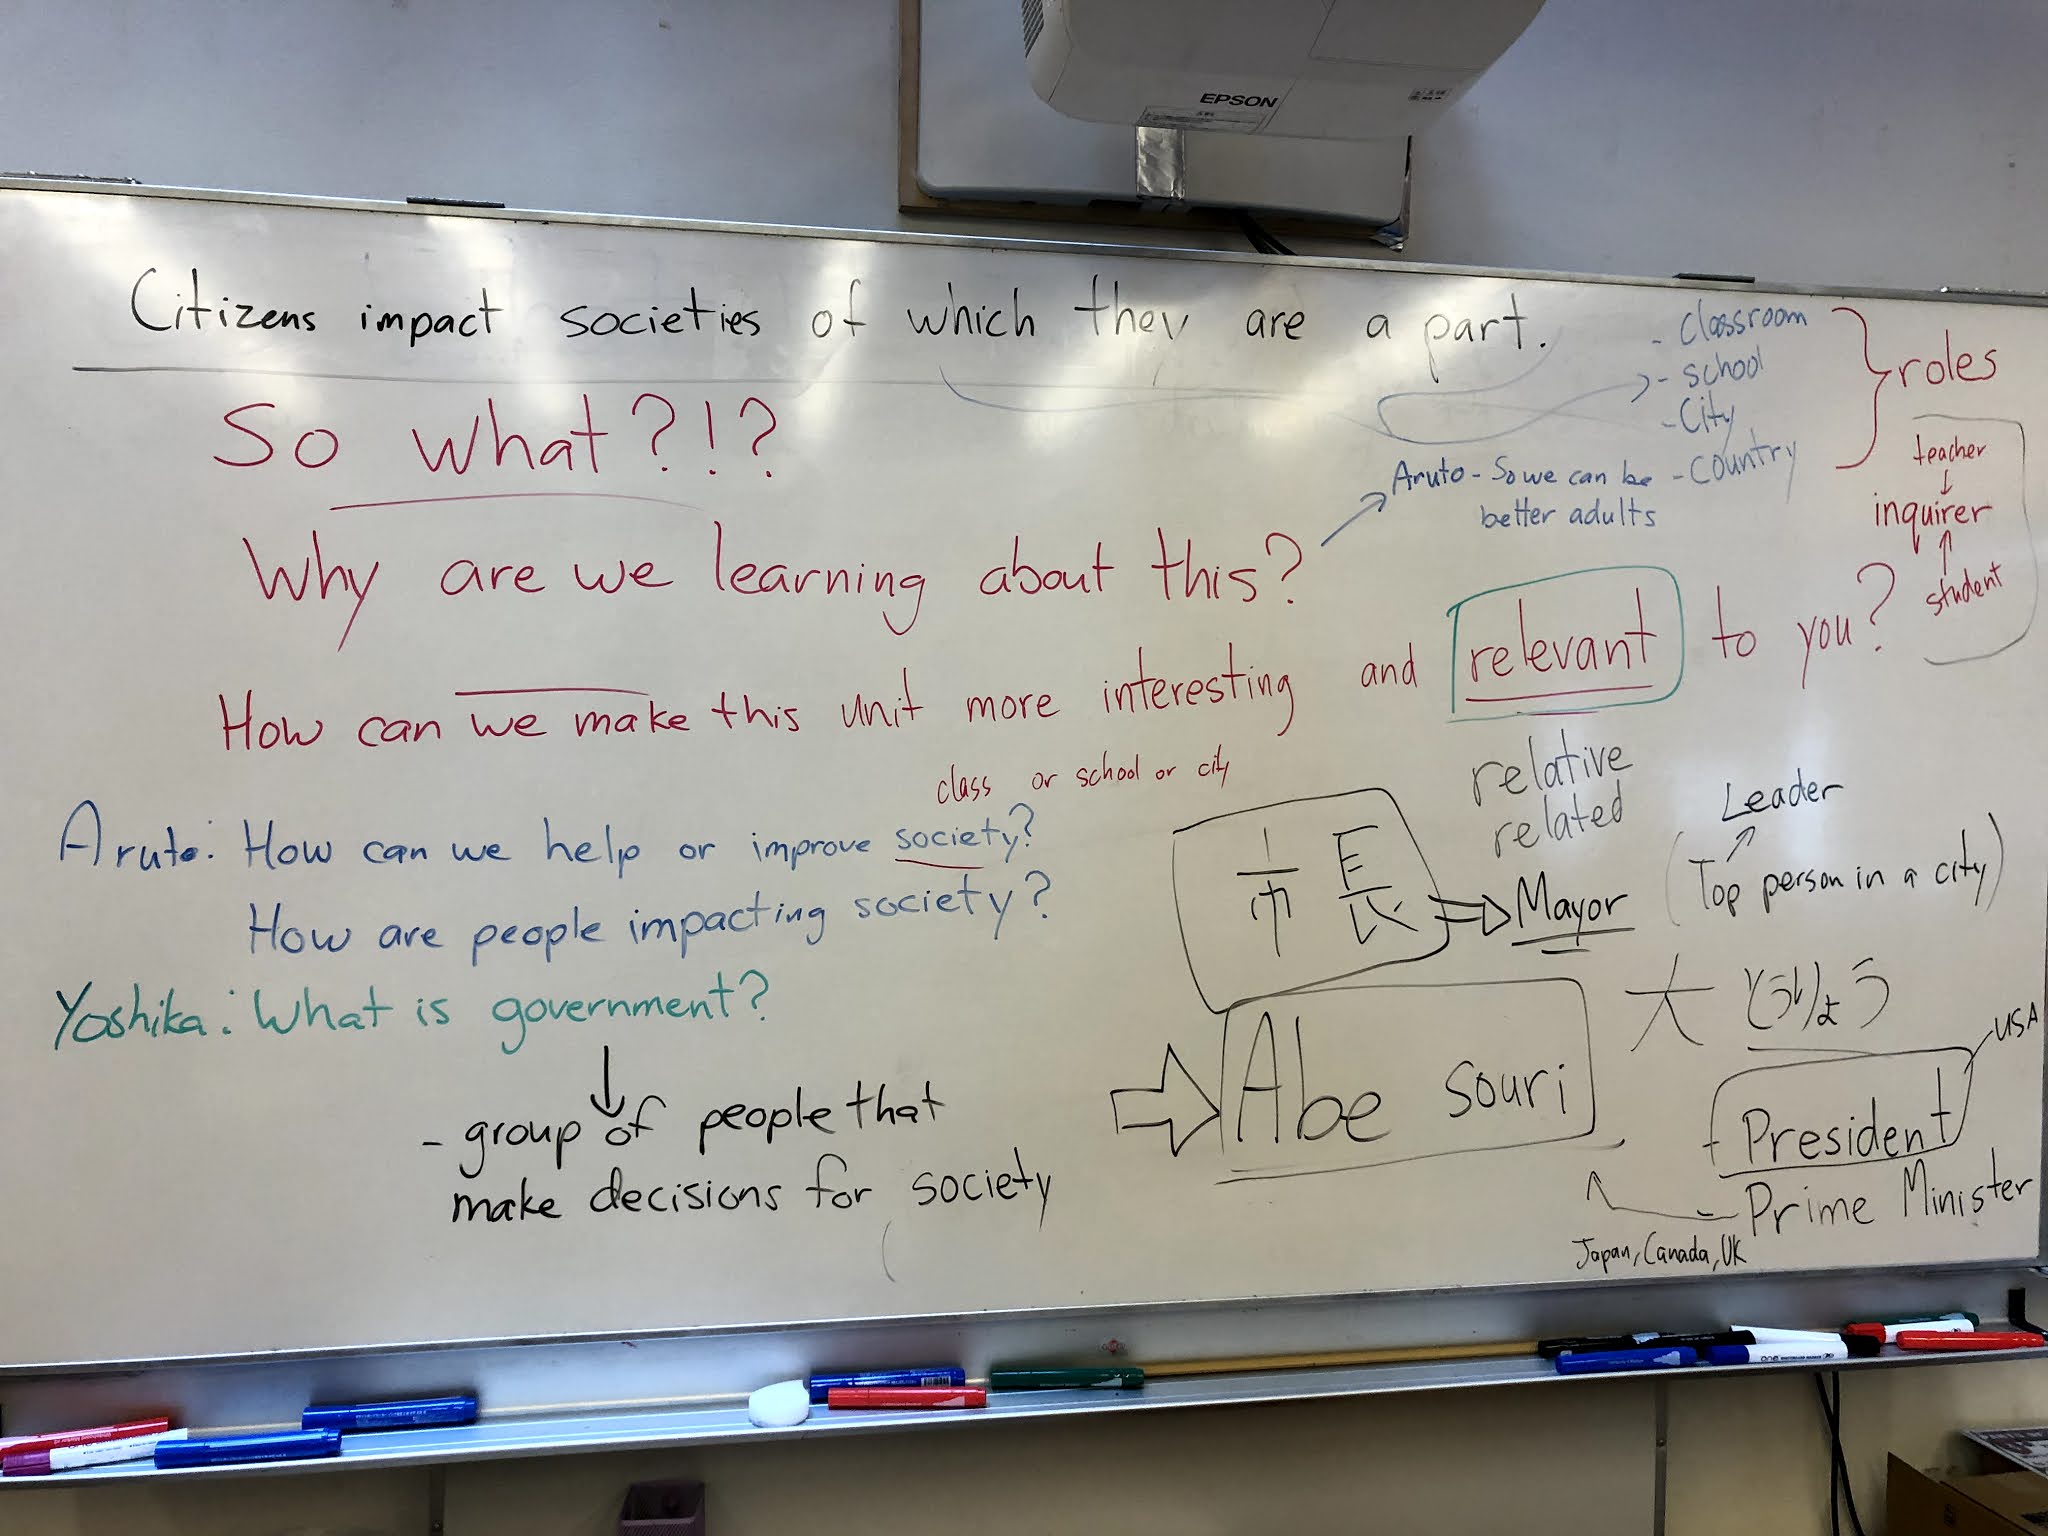 EPSON
Citizens impact societies of which they are a part.
- Classroom
- school
- City
- Country
roles
teacher
inquirer
student
So what?!?
Aruto - So we can be
better adults
Why are we learning about this?
How can we make this unit more interesting and relevant to you?
class or school or city
relative
related
Aruto: How can we help or improve society?
How are people impacting society?
市長
Mayor
Leader
(Top person in a city)
Yoshika: What is government?
- group of people that
make decisions for society
大とうりょう
Abe souri
USA
- President
- Prime Minister
Japan, Canada, UK